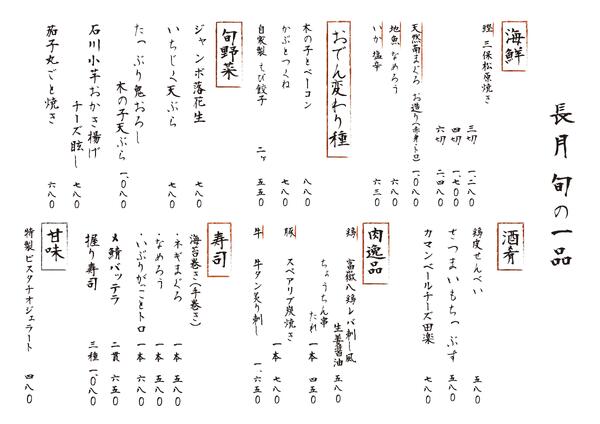 長月旬の一品
海鮮
鰹 三保松原焼き
三切 一、二八〇
四切 一、七〇〇
六切 二、四八〇
天然南まぐろ お造り(赤身・トロ) 一、〇八〇
地魚 なめろう 六八〇
いか 塩辛 六三〇
おでん変わり種
木の子とベーコン 八八〇
かぶとつくね 七八〇
自家製 えび餃子 二ヶ 五五〇
旬野菜
ジャンボ落花生 七八〇
いちじく天ぷら 七八〇
たっぷり鬼おろし
木の子天ぷら 一、〇八〇
石川小芋おかき揚げ
チーズ眩し 七八〇
茄子丸ごと焼き 六八〇
酒肴
鶏皮せんべい 五八〇
さつまいもちっぷす 五八〇
カマンベールチーズ田楽 七八〇
肉逸品
鶏 富嶽八鶏レバ刺し風
生姜醤油 五八〇
ちょうちん串
たれ 一本 四五〇
豚 スペアリブ炭焼き
一本 七八〇
牛 牛タン炙り刺し 一、六五〇
寿司
海苔巻き(手巻き)
・ネギまぐろ 一本 五八〇
・なめろう 一本 五八〇
・いぶりがっことトロ 一本 六八〇
〆鯖バッテラ 二貫 六五〇
握り寿司 三種 一、〇八〇
甘味
特製ピスタチオジェラート 四八〇